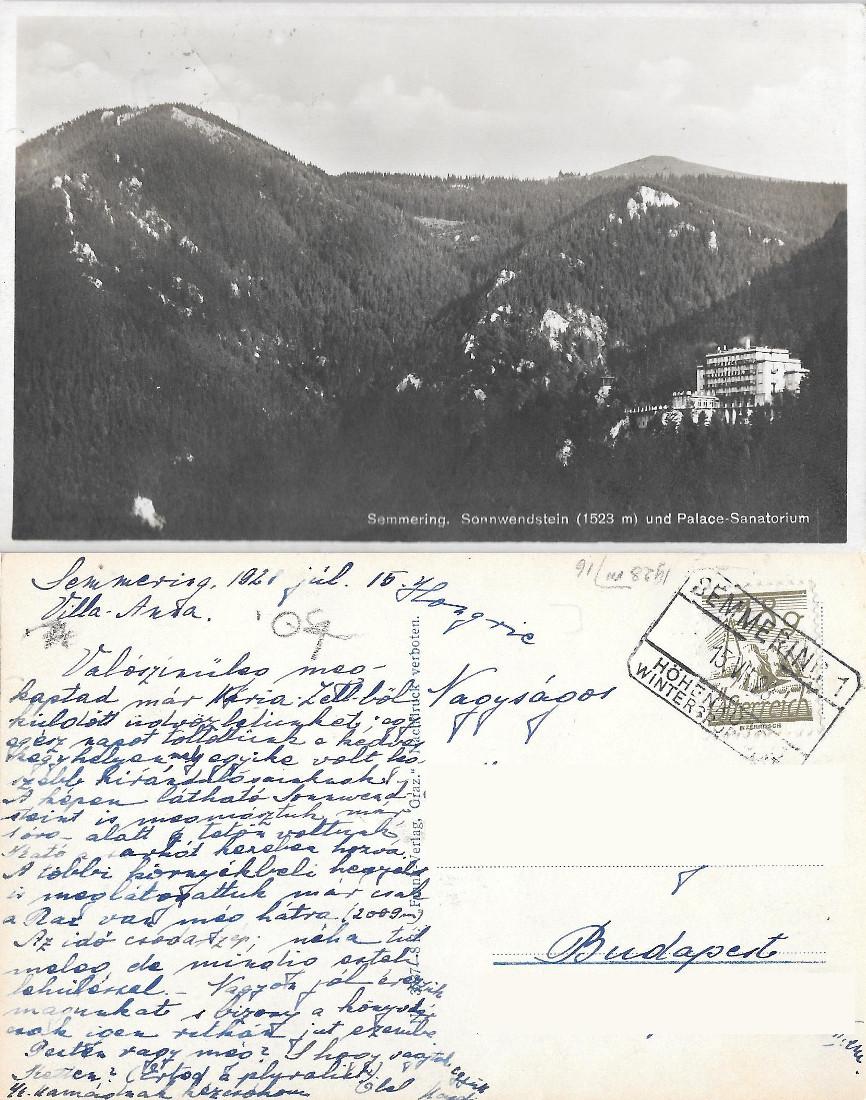 Semmering. Sonnwendstein (1523 m) und Palace-Sanatorium
Semmering, 192 júl. 15.
Villa-Anna.
Valószinüleg meg-
kaptad már Mária-Zell-ből
küldött üdvözletünket; egy
egész napot töltöttünk a kedves
kegyhelyen egyike volt
szebb kirándulásainknak.
A képen látható Sonnwend-
steint is megmásztuk, már
1 óra alatt a tetőn voltunk
hozva.
A többi környékbeli hegyeket
is meglátogattuk már csak
a Rax van még hátra (2009 m)
Az idő csodaszép; néha túl
meleg, de mindig esteli
lehüléssel. – Nagyon jól érezzük
magunkat s bizony a könyv
csak igen ritkán jut eszembe
Pesten vagy még? S hogy vagytok
ketten? (Érted a pluralist)
kézcsókom Ölel
Hongrie
Nagyságos
Budapest
1928 VII/16
SEMMERING 1
15.VII
HÖHEN
WINTERS
Österreich
Frank-Verlag, Graz. Nachdruck verboten.